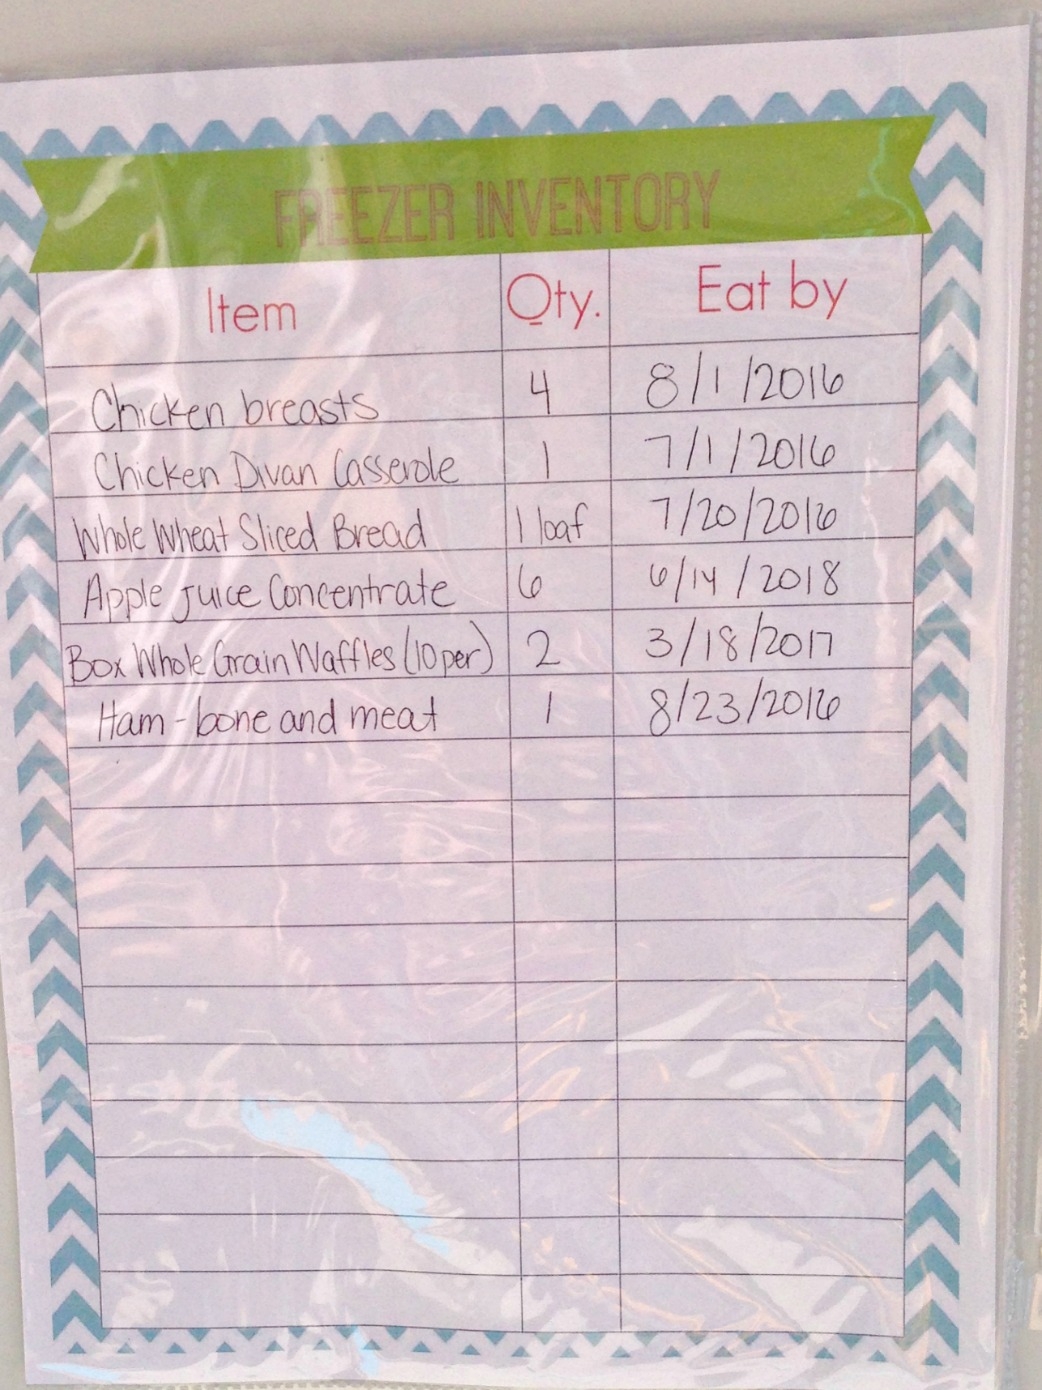 FREEZER INVENTORY
Item Qty. Eat by
Chicken breasts 4 8/1/2016
Chicken Divan Casserole 1 7/1/2016
Whole Wheat Sliced Bread 1 loaf 7/20/2016
Apple Juice Concentrate 6 6/14/2018
Box Whole Grain Waffles (10 per) 2 3/18/2017
Ham - bone and meat 1 8/23/2016